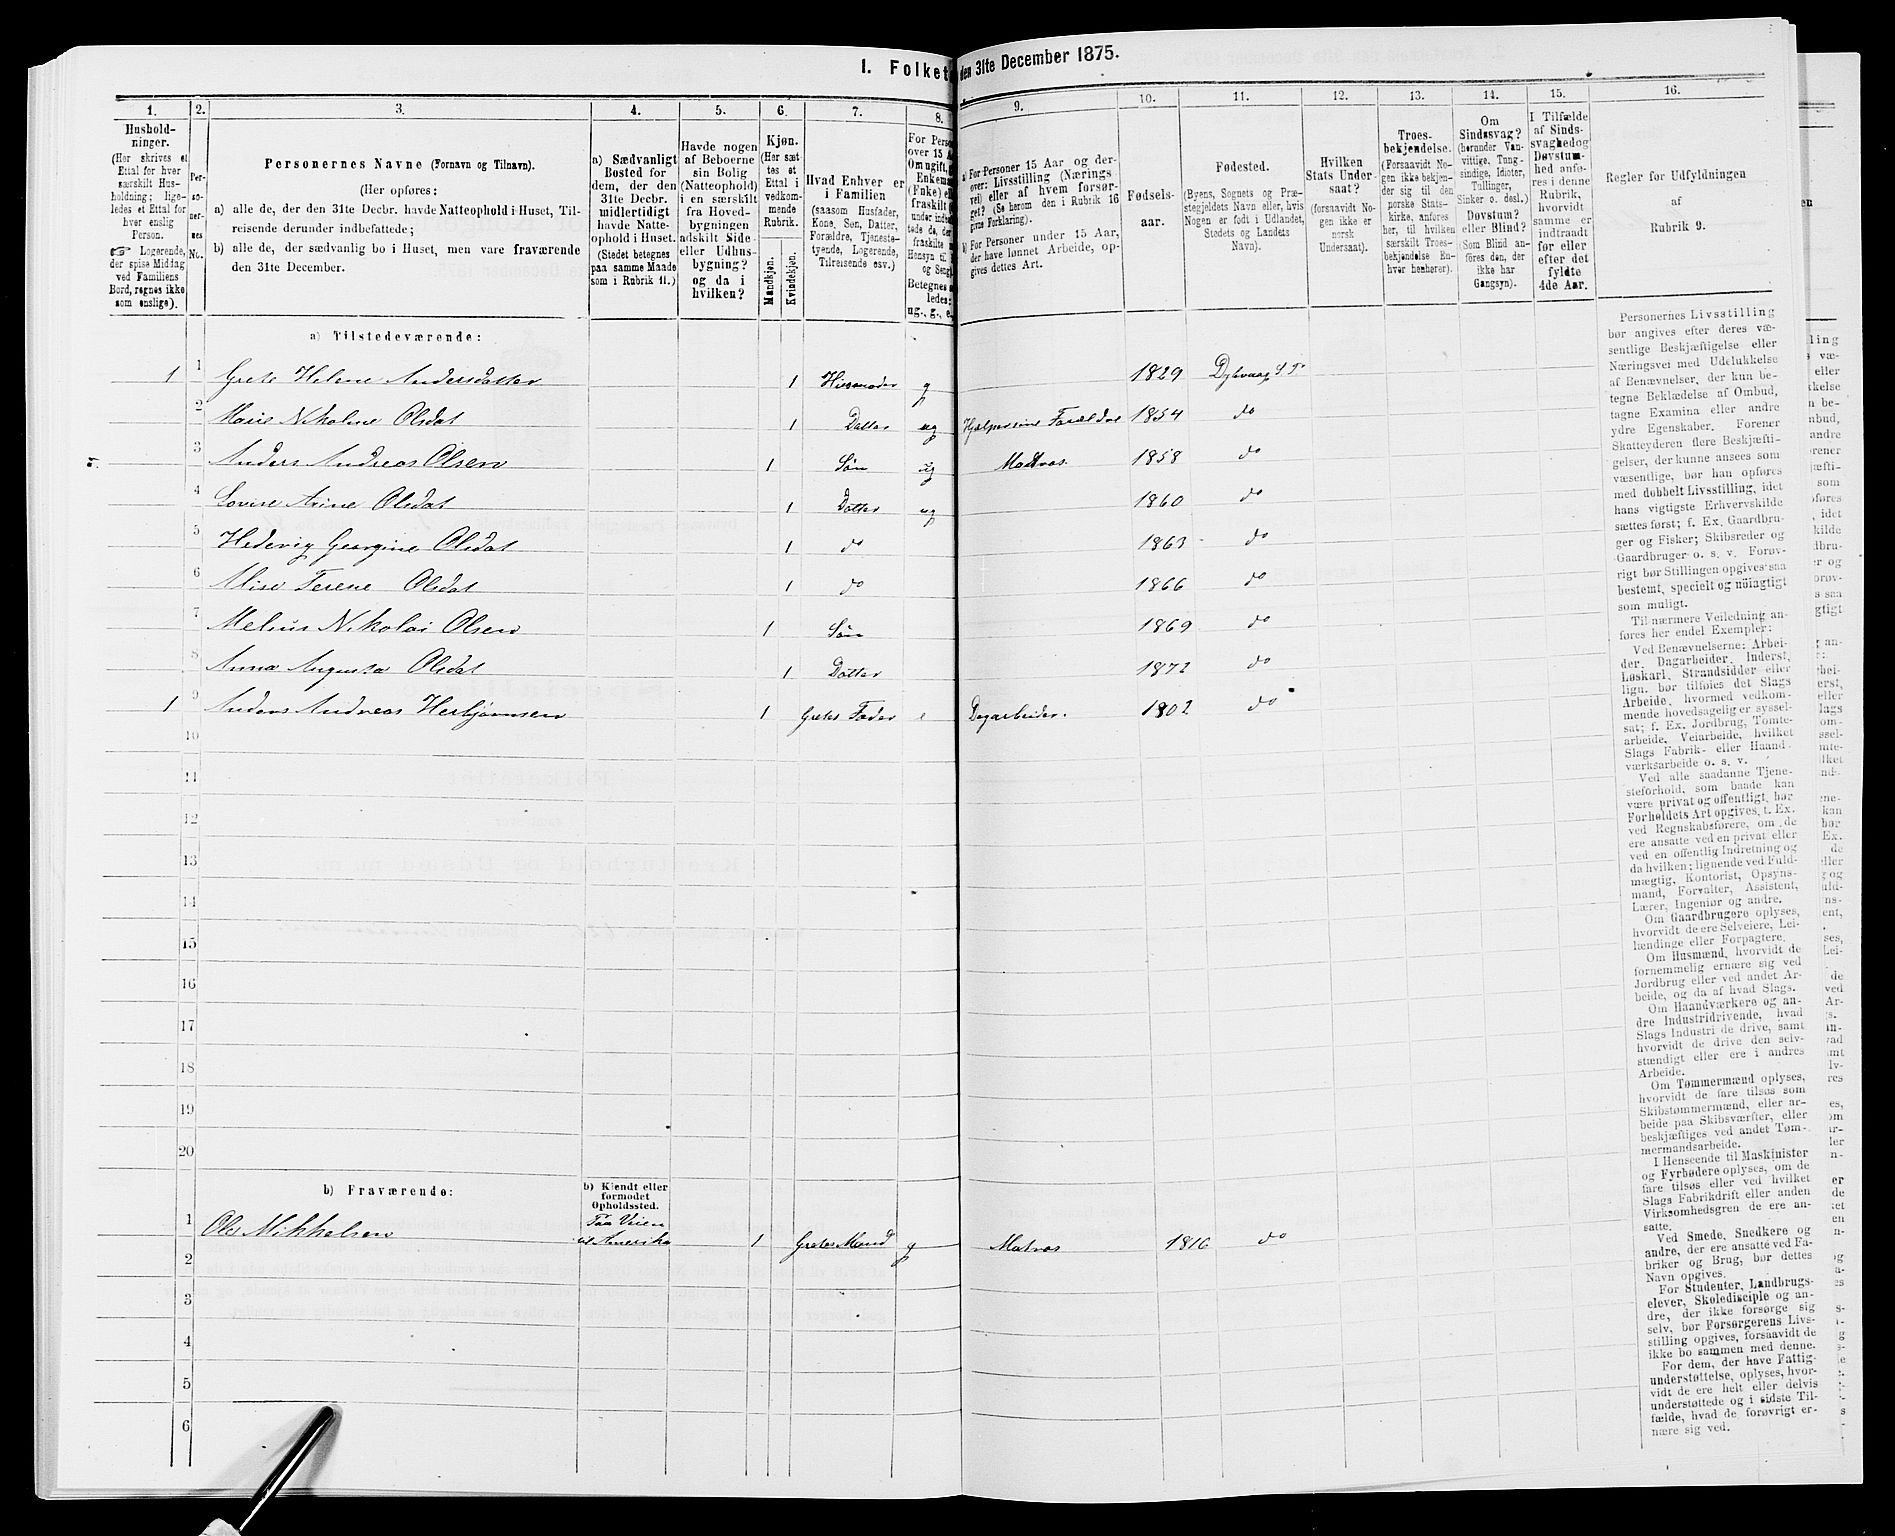 I. Folket
den 31te December 1875.
1. 2. 3. 4. 5. 6. 7. 8. 9. 10. 11. 12. 13. 14. 15. 16.
Hushold-
ninger.
(Her skrives et
Ettal for hver
særskilt Hus-
holdning; lige-
ledes et Ettal for
hver enslig
Person.
☞ Logerende,
der spise Middag
ved Familiens
Bord, regnes ikke
som enslige).
Per-
so-
ner-
nes
No.
Personernes Navne (Fornavn og Tilnavn).
(Her opføres:
a) alle de, der den 31te Decbr. havde Natteophold i Huset, Til-
reisende derunder indbefattede;
b) alle de, der sædvanlig bo i Huset, men vare fraværende
den 31te December.
a) Sædvanligt
Bosted for
dem, der den
31te Decbr.
midlertidigt
havde Natte-
ophold i Huset.
(Stedet betegnes
paa samme Maade
som i Rubrik 11.)
Havde nogen
af Beboerne
sin Bolig
(Natteophold)
i en særskilt
fra Hoved-
bygningen
adskilt Side-
eller Udhus-
bygning?
og da i
hvilken?
Kjøn.
(Her sæt-
tes et
Ettal i
vedkom-
mende
Rubrik.
Mandkjøn.
Kvindekjøn.
Hvad Enhver er
i Familien
(saasom Husfader,
Kone, Søn, Datter,
Forældre, Tjeneste-
tyende, Logerende,
Tilreisende osv.)
For Perso
over 15 A
Om ugift,
Enkema
(Enke) e
fraskilt
Betegnes s
ledes:
ug., g., e.
a) For Personer 15 Aar og der-
over: Livsstilling (Nærings
vei) eller af hvem forsør-
get? (Se herom den i Rubrik 16
givne Forklaring).
b) For Personer under 15 Aar,
der have lønnet Arbeide, op-
gives dettes Art.
Fødsels-
aar.
Fødested.
(Byens, Sognets og Præ-
stegjeldets Navn eller, hvis
Nogen er født i Udlandet,
Stedets og Landets
Navn).
Hvilken
Stats Under-
saat?
(forsaavidt No-
gen ikke er
norsk
Undersaat).
Troes-
bekjendelse.
(Forsaavidt No-
gen ikke bekjen-
der sig til den
norske Stats-
kirke, anføres
her, til hvilken
særskilt Troes-
bekjendelse En-
hver henhører).
Om
Sindssvag?
(herunder Van-
vittige, Tung-
sindige, Idioter,
Tullinger,
Sinker o. desl.)
Døvstum?
eller Blind?
(Som Blind an-
føres den, der
ikke har
Gangsyn).
I Tilfælde
af Sinds-
svaghed og
Døvstum-
hed anfø-
res i denne
Rubrik,
hvorvidt
samme er
indtraadt
før eller
efter det
fyldte
4de Aar.
Regler for Udfyldningen
af
Rubrik 9.
a) Tilstedeværende:
1 1 Grete Helene Andersdatter 1 Husmoder g 1829 Dybvaag
2 Marie Nikoline Olsdat 1 Datter ug 1854 do
3 Anders Andreas Olsen 1 Søn ug Matros. 1858 do
4 Lovise Arine Olsdat 1 Datter ug 1860 do
5 Hedevig Georgine Olsdat 1 do 1863 do
6 Olsdat 1 do 1866 do
7 Melius Nikolai Olsen 1 Søn 1869 do
8 Anna Augusta Olsdat 1 Datter 1872 do
1 9 Anders Andreas Herbjørnsen 1 Gretes Fader e Dagarbeider. 1802 do
10
11
12
13
15
16
17
18
19
20
b) Fraværende:
b) Kjendt eller
formodet
Opholdssted.
1 Ole Mikkelsen Paa Veien
til Amerika 1 Gretes Mand g Matros 1816 do
2
3
4
5
6
Personernes Livsstilling
bør angives efter deres væ-
sentlige Beskjæftigelse eller
Næringsvei med Udelukkelse
af Benævnelser, der kun be-
tegne Beklædelse af Ombud,
tagne Examina eller andre
ydre Egenskaber. Forener
Skatteyderen flere Beskjæfti-
gelser, der kunne ansees som
væsentlige, bør han opføres
med dobbelt Livsstilling, idet
hans vigtigste Erhvervskilde
sættes først; f. Ex. Gaardbru-
ger og Fisker; Skibsreder og
Gaardbruger o. s. v. Forøv-
rigt bør Stillingen opgives saa
bestemt, specielt og nøiagtigt
som muligt.
Til nærmere Veiledning an-
føres her endel Exempler:
Ved Benævnelserne: Arbei-
der, Dagarbeider, Inderst,
Løskarl, Strandsidder eller
lign. bør tilføies det Slags
Arbeide, hvormed vedkom-
mende hovedsagelig er syssel-
sat; f. Ex. Jordbrug, Tomte-
arbeide, Veiarbeide, hvilket
Slags Fabrik- eller Haand-
værksarbeide o. s. v.
Ved alle saadanne Tjene-
steforhold, som baade kan
være privat og offentligt, bør
Forholdets Art opgives, t. Ex.
ved Regnskabsførere, om de
ere ansatte ved en privat eller
ved en offentlig Indretning og
da hvilken; lignende ved Fuld-
mægtig, Kontorist, Opsyns-
mand, Forvalter, Assistent,
Lærer, Ingeniør og andre.
Om Gaardbrugere oplyses,
hvorvidt de ere Selveiere, Lei-
lændinge eller Forpagtere.
Om Husmænd, hvorvidt de
fornemmelig ernære sig ved
Jordbrug eller ved andet Ar-
beide, og da af hvad Slags.
Om Haandværkere og an-
dre Industridrivende, hvad
Slags Industri de drive, samt
hvorvidt de drive den selv-
stændigt eller ere i andres
Arbeide.
Om Tømmermænd oplyses,
hvorvidt de fare tilsøs som
Skibstømmermænd, eller ar-
beide paa Skibsværfter, eller
beskjæftiges ved andet Tøm-
mermandsarbeide.
I Henseende til Maskinister
og Fyrbødere oplyses, om de
fare tilsøs eller ved hvilket
Slags Fabrikdrift eller anden
Virksomhedsgren de ere an-
satte.
Ved Smede, Snedkere og
andre, der ere ansatte ved Fa-
briker og Brug, bør dettes
Navn opgives.
For Studenter, Landbrugs-
elever, Skoledisciple og an-
dre, der ikke forsørge sig
selv, bør Forsørgerens Livs-
stilling opgives, forsaavidt de
ikke bo sammen med denne.
For dem, der have Fattig-
understøttelse, oplyses, hvor-
vidt de ere helt eller delvis
understøttede og i sidste Til-
fælde, hvad de forøvrigt er-
nære sig ved.